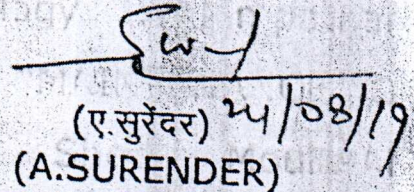 (ए.सुरेंदर) 24/08/19
(A.SURENDER)